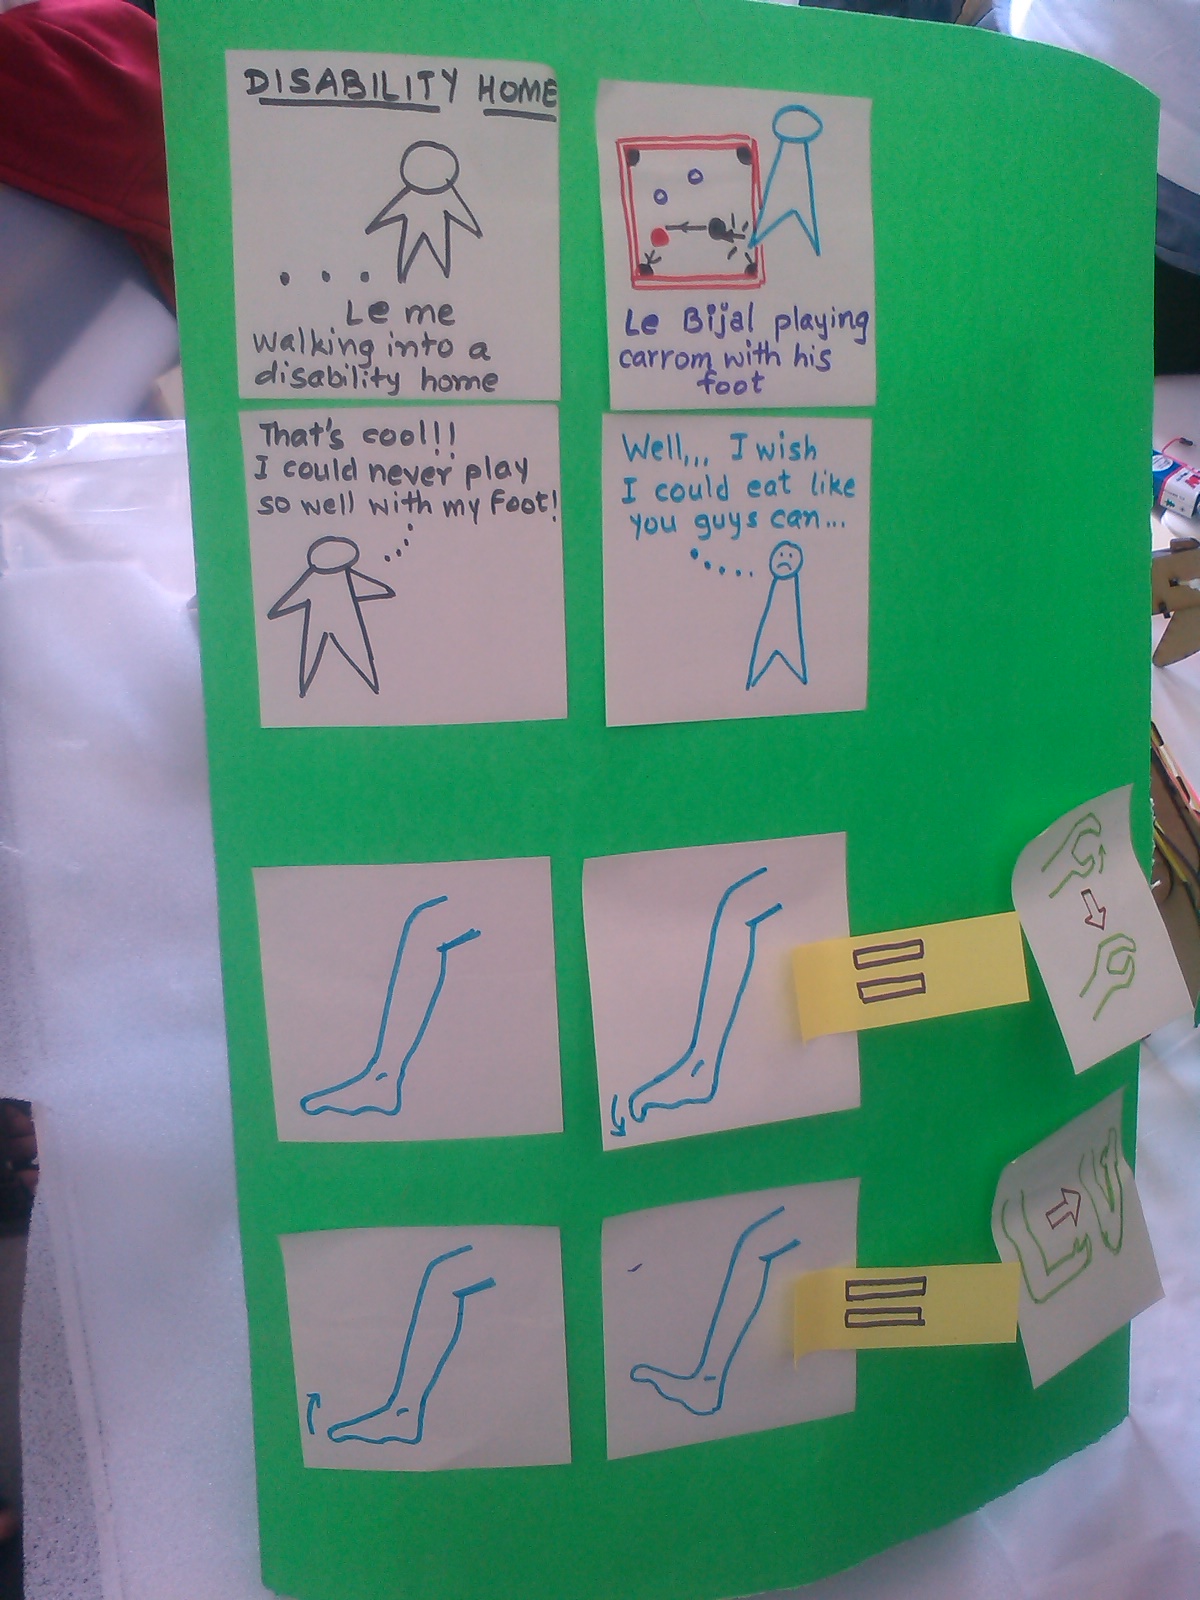 DISABILITY HOME
Le me
walking into a
disability home
Le Bijal playing
carrom with his
foot
That's cool!!!
I could never play
so well with my foot!
Well,,, I wish
I could eat like
you guys can...